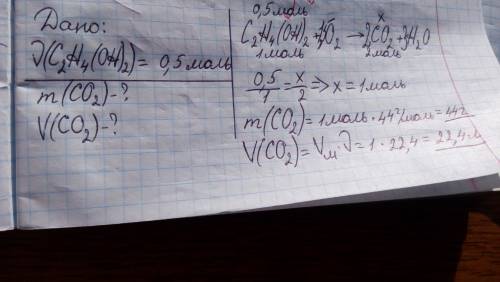 Дано:
ν(C₂H₄(OH)₂) = 0,5 моль
m(CO₂) - ?
V(CO₂) - ?
0,5 моль x
C₂H₄(OH)₂ + O₂ → 2CO₂ + 3H₂O
1 моль 2 моль
0,5/1 = x/2 => x = 1 моль
m(CO₂) = 1 моль · 44 г/моль = 44 г
V(CO₂) = Vм · ν = 1 · 22,4 = 22,4 л